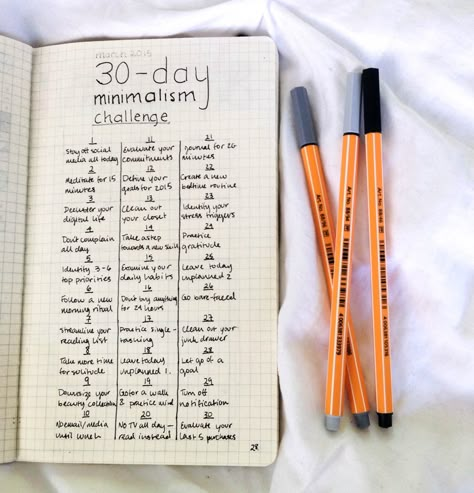 march 2015
30-day
minimalism
challenge
1
Stay off social
media all today
2
Meditate for 15
minutes
3
Declutter your
digital life
4
Don't complain
all day
5
Identify 3-6
top priorities
6
Follow a new
morning ritual
7
Streamline your
reading list
8
Take more time
for solitude
9
Downsize your
beauty collection
10
No email/media
until lunch
11
Evaluate your
commitments
12
Define your
goals for 2015
13
Clean out
your closet
14
Take a step
towards a new skill
15
Examine your
daily habits
16
Don't buy anything
for 24 hours
17
Practice single-
tasking
18
Leave today
unplanned 1.
19
Go for a walk
& practice mind
20
No TV all day -
read instead
21
Journal for 20
minutes
22
Create a new
bedtime routine
23
Identify your
stress triggers
24
Practice
gratitude
25
Leave today
unplanned 2
26
Go bare-faced
27
Clean out your
junk drawer
28
Let go of a
goal
29
Turn off
notification
30
Evaluate your
last 5 purchases
28
Art.No. 88/94